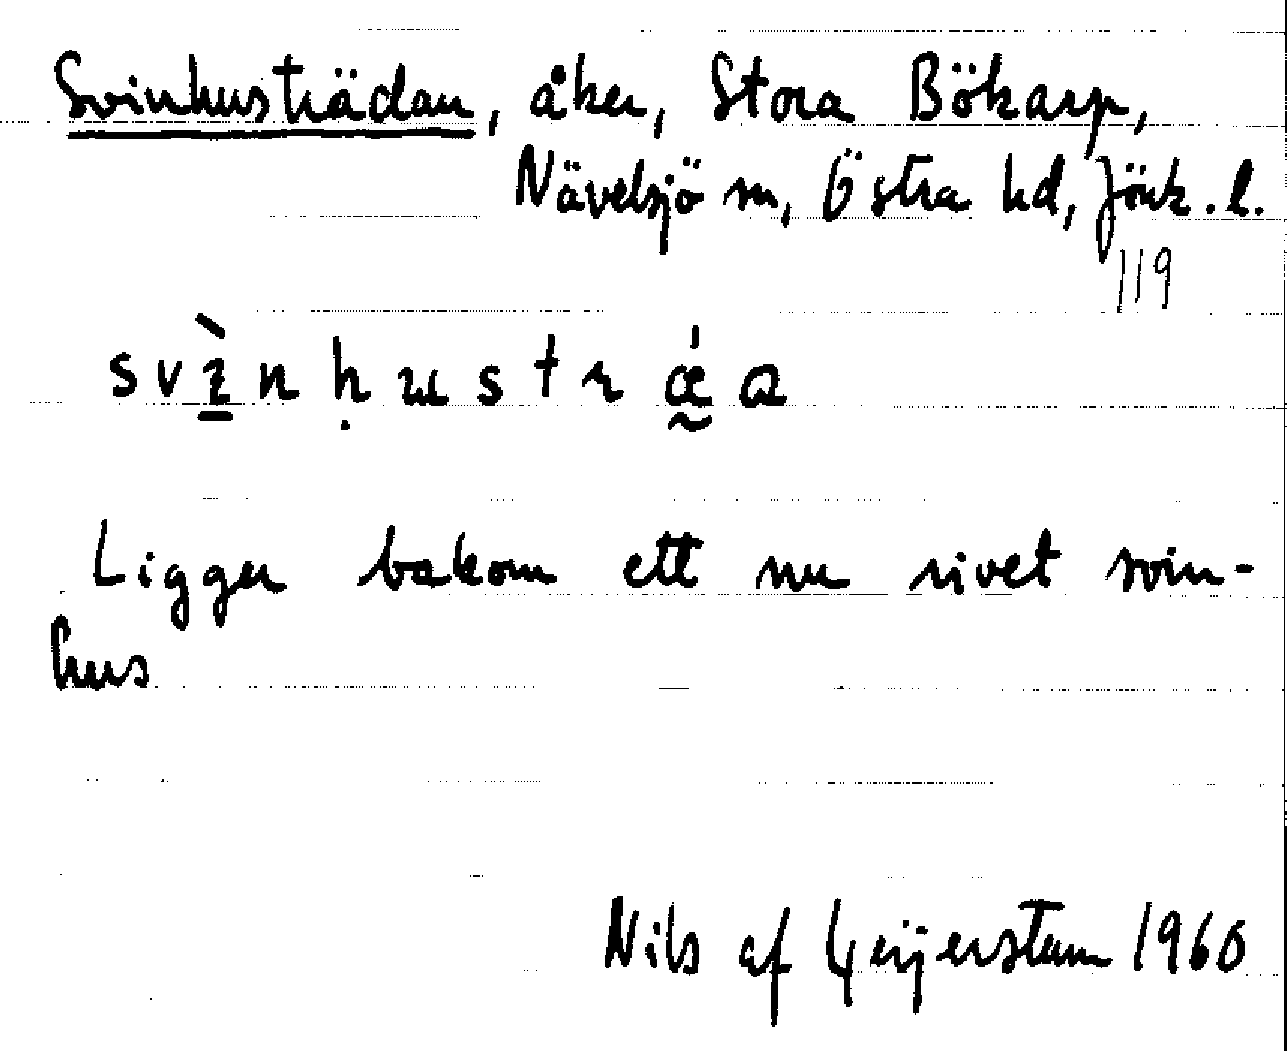 Svinhusträdan, åker, Stora Bökarp,
Nävelsjö sn, Östra hd, Jönk. l.
119
Ligger bakom ett nu rivet svin-
hus
Nils af Geijerstam 1960